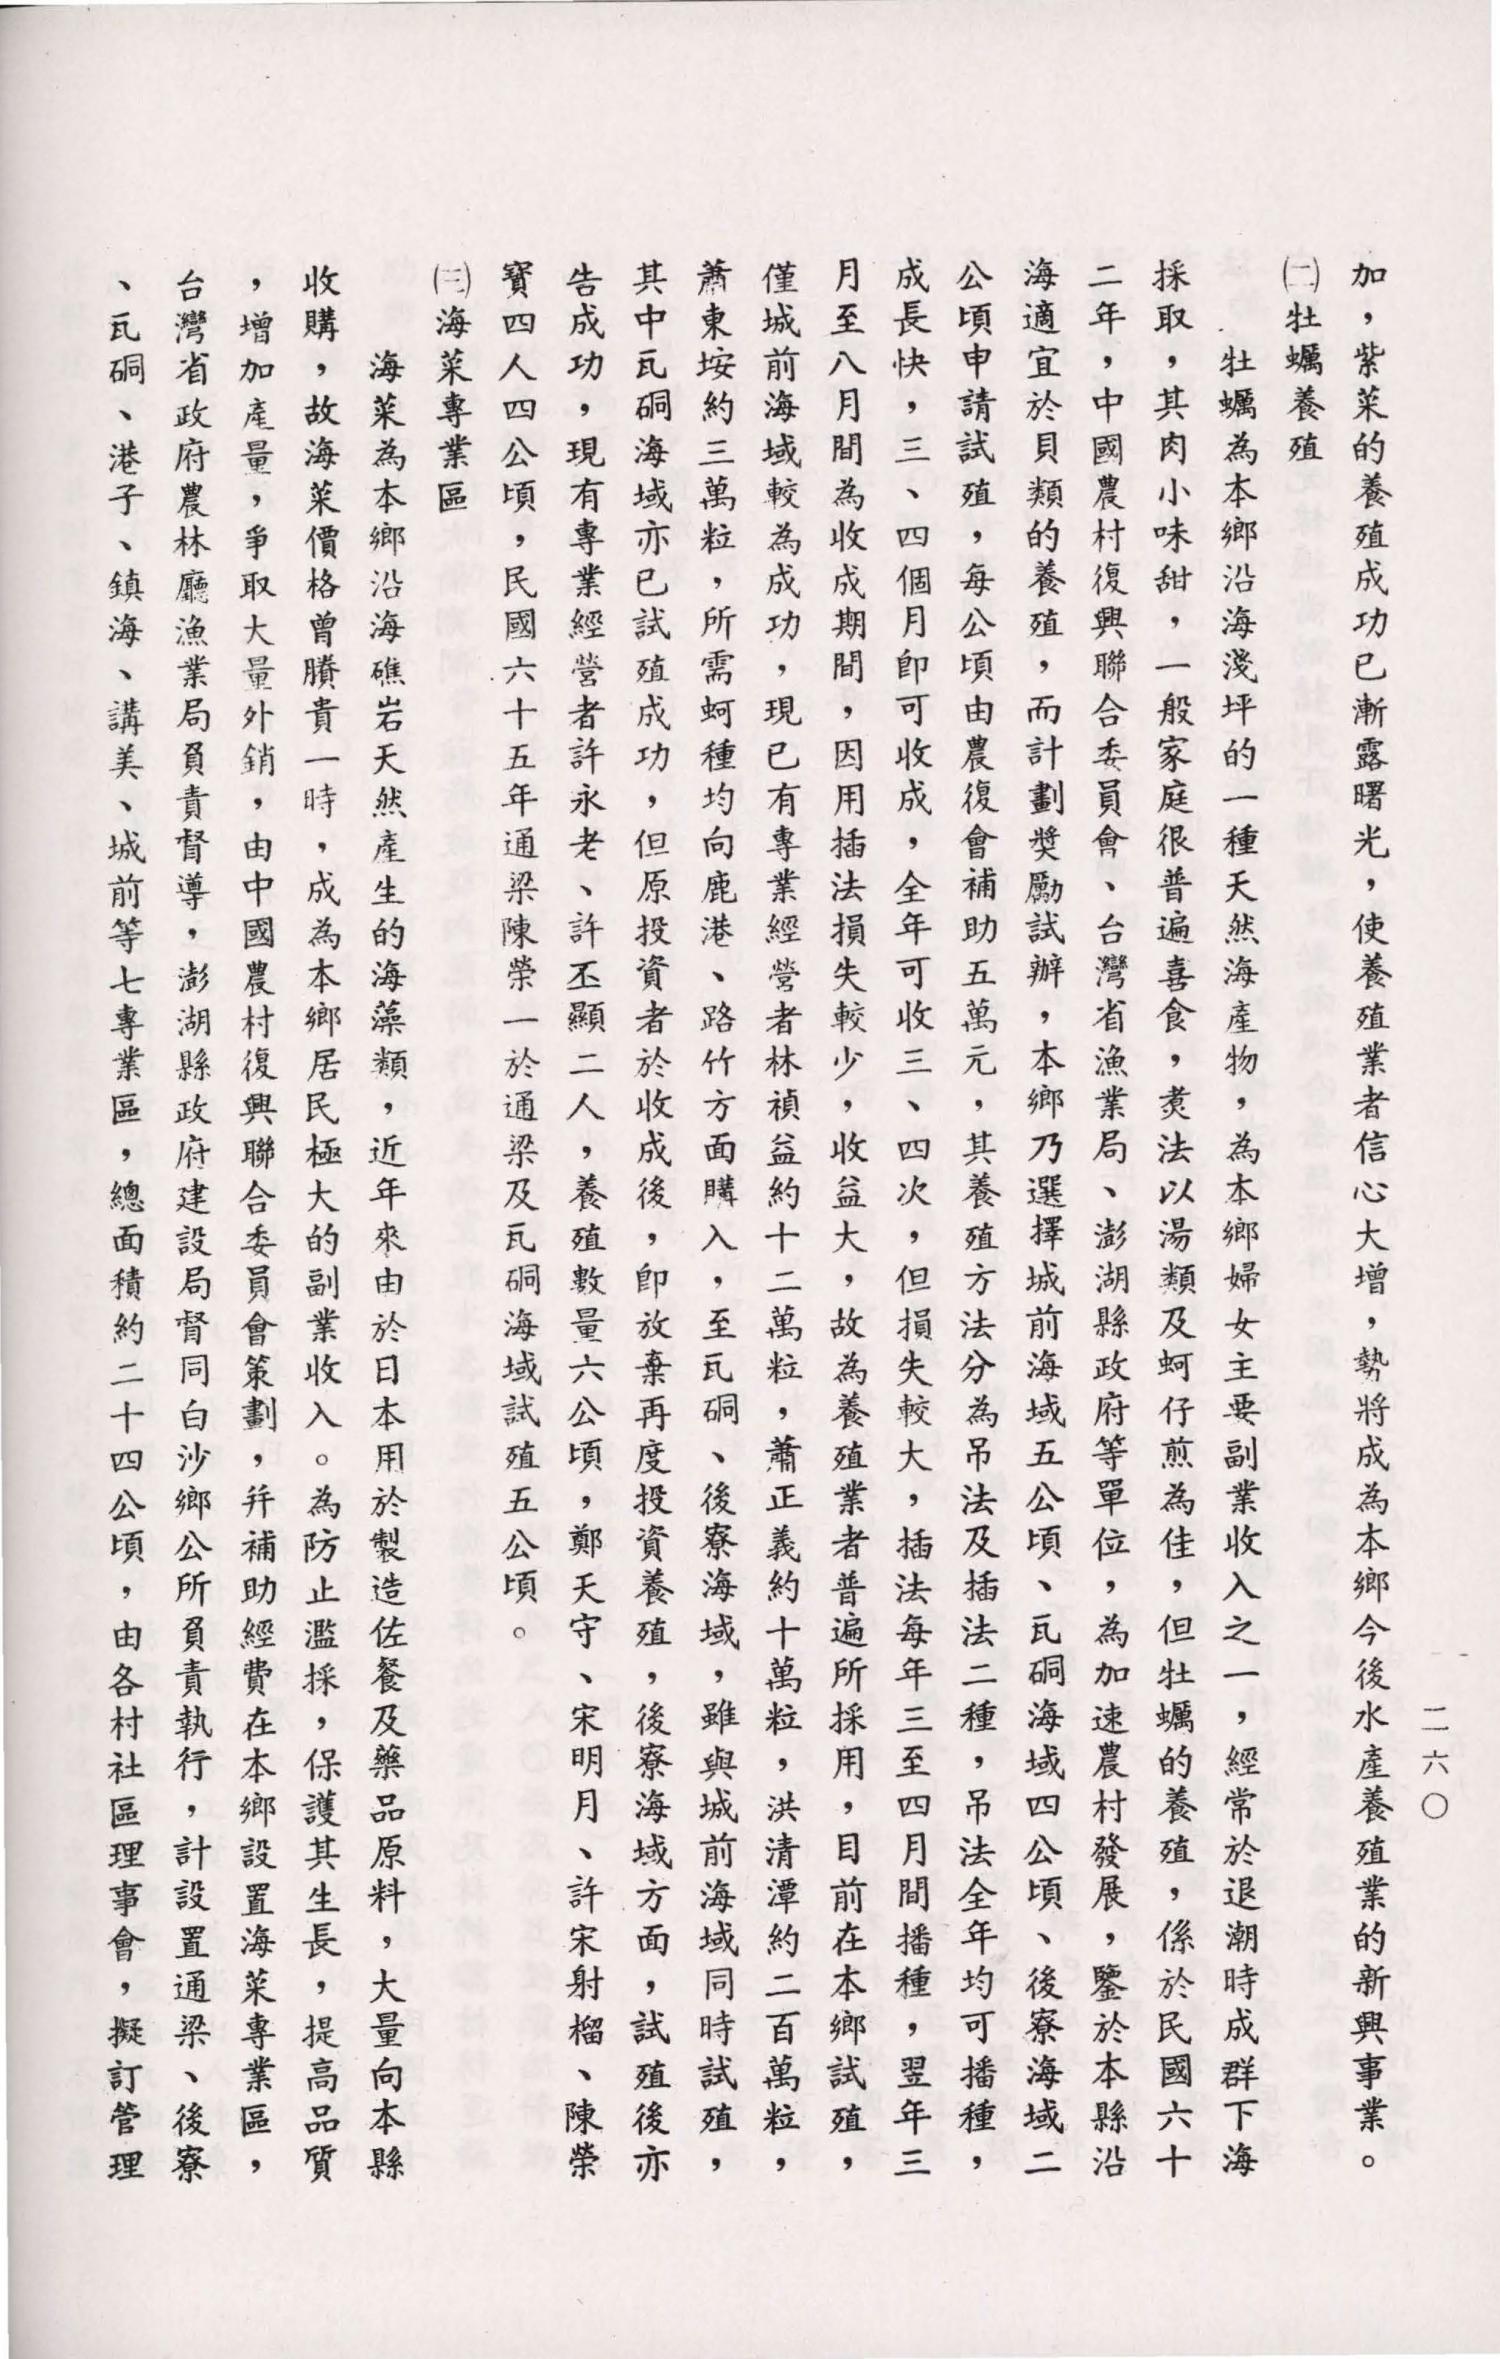 二六〇
加，紫菜的養殖成功已漸露曙光，使養殖業者信心大增，勢將成為本鄉今後水產養殖業的新興事業。
㈡牡蠣養殖
牡蠣為本鄉沿海淺坪的一種天然海產物，為本鄉婦女主要副業收入之一，經常於退潮時成群下海
採取，其肉小味甜，一般家庭很普遍喜食，煮法以湯類及蚵仔煎為佳，但牡蠣的養殖，係於民國六十
二年，中國農村復興聯合委員會、台灣省漁業局、澎湖縣政府等單位，為加速農村發展，鑒於本縣沿
海適宜於貝類的養殖，而計劃獎勵試辦，本鄉乃選擇城前海域五公頃、瓦硐海域四公頃、後寮海域二
公頃申請試殖，每公頃由農復會補助五萬元，其養殖方法分為吊法及插法二種，吊法全年均可播種，
成長快，三、四個月卽可收成，全年可收三、四次，但損失較大，插法每年三至四月間播種，翌年三
月至八月間為收成期間，因用插法損失較少，收益大，故為養殖業者普遍所採用，目前在本鄉試殖，
僅城前海域較為成功，現已有專業經營者林禎益約十二萬粒，蕭正義約十萬粒，洪清潭約二百萬粒，
蕭東垵約三萬粒，所需蚵種均向鹿港、路竹方面購入，至瓦硐、後寮海域，雖與城前海域同時試殖，
其中瓦硐海域亦已試殖成功，但原投資者於收成後，卽放棄再度投資養殖，後寮海域方面，試殖後亦
告成功，現有專業經營者許永老、許丕顯二人，養殖數量六公頃，鄭天守、宋明月、許宋射榴、陳榮
寶四人四公頃，民國六十五年通梁陳榮一於通梁及瓦硐海域試殖五公頃。
㈢海菜專業區
海菜為本鄉沿海礁岩天然產生的海藻類，近年來由於日本用於製造佐餐及藥品原料，大量向本縣
收購，故海菜價格曾騰貴一時，成為本鄉居民極大的副業收入。為防止濫採，保護其生長，提高品質
，增加產量，爭取大量外銷，由中國農村復興聯合委員會策劃，幷補助經費在本鄉設置海菜專業區，
台灣省政府農林廳漁業局負責督導，澎湖縣政府建設局督同白沙鄉公所負責執行，計設置通梁、後寮
、瓦硐、港子、鎮海、講美、城前等七專業區，總面積約二十四公頃，由各村社區理事會，擬訂管理